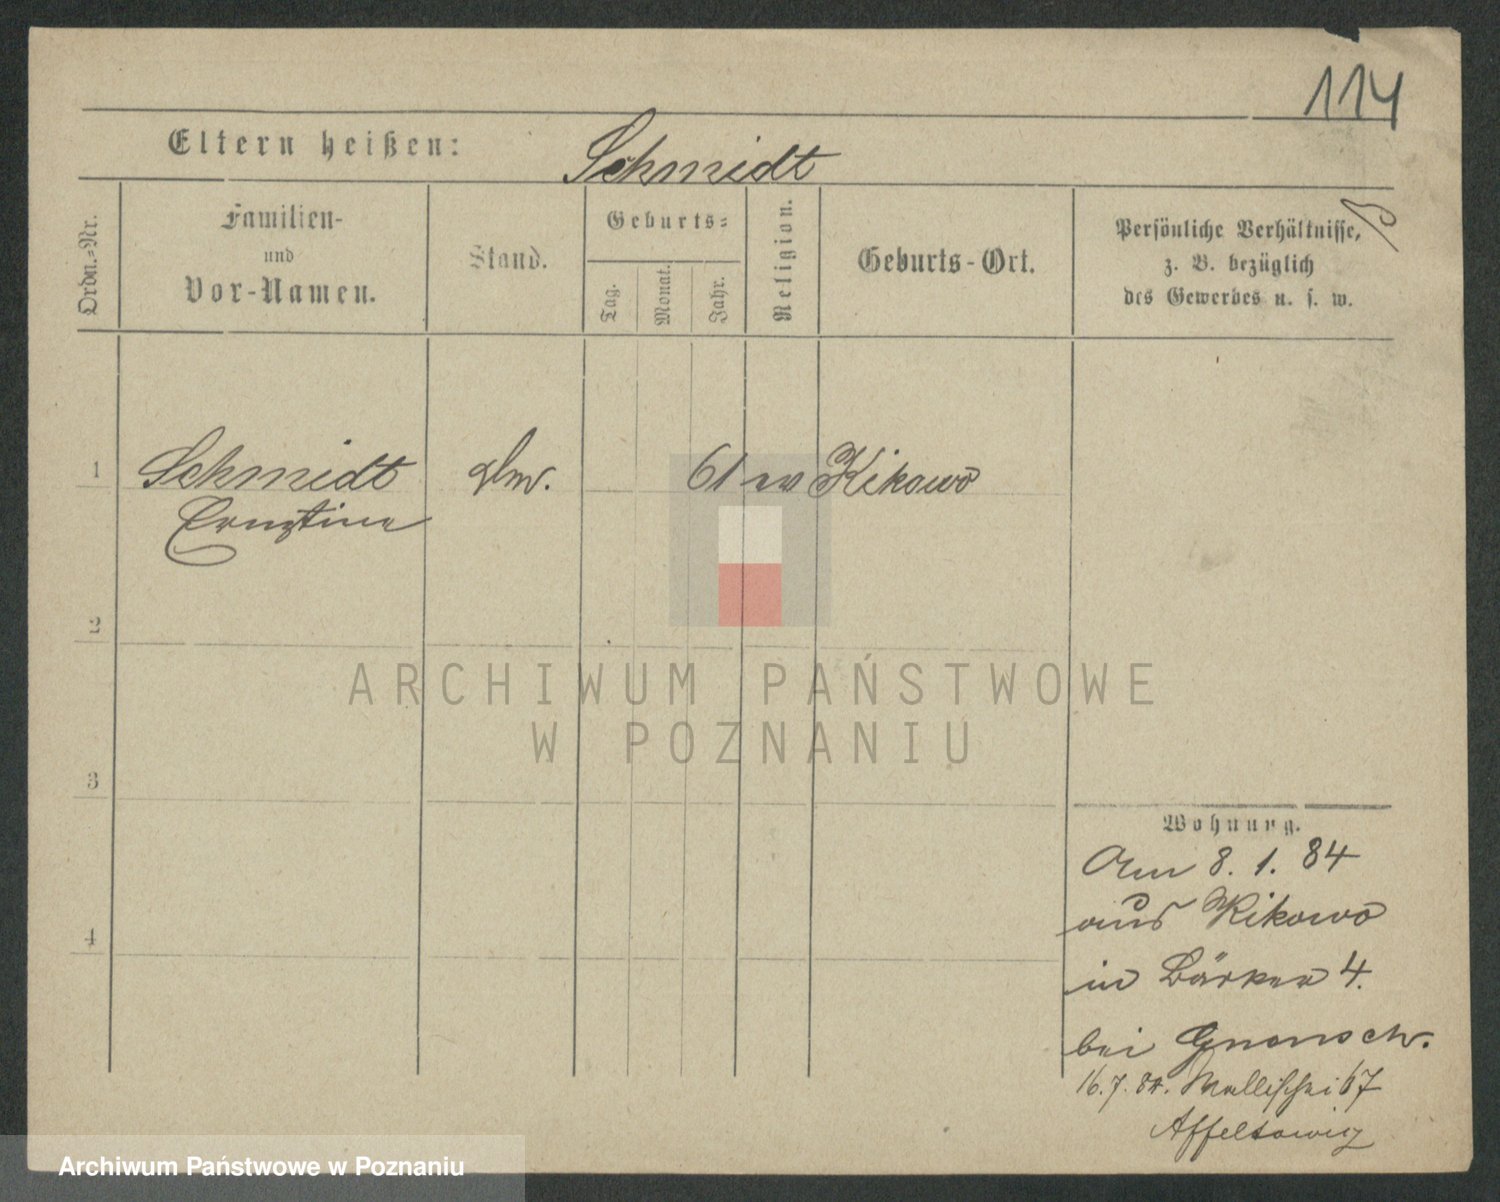 114
Eltern heißen: Schmidt
Ordn.-Nr.
Familien-
und
Vor-Namen.
Stand.
Geburts-
Tag.
Monat.
Jahr.
Religion.
Geburts-Ort.
Persönliche Verhältnisse,
z. B. bezüglich
des Gewerbes u. s. w.
1 Schmidt 61 ev Kikowo
Ernstine
2
3
4
Wohnung.
Am 8. 1. 84
aus Kikowo
in 4.
bei
16.7.84. Wallischei 67
ARCHIWUM PAŃSTWOWE
W POZNANIU
Archiwum Państwowe w Poznaniu